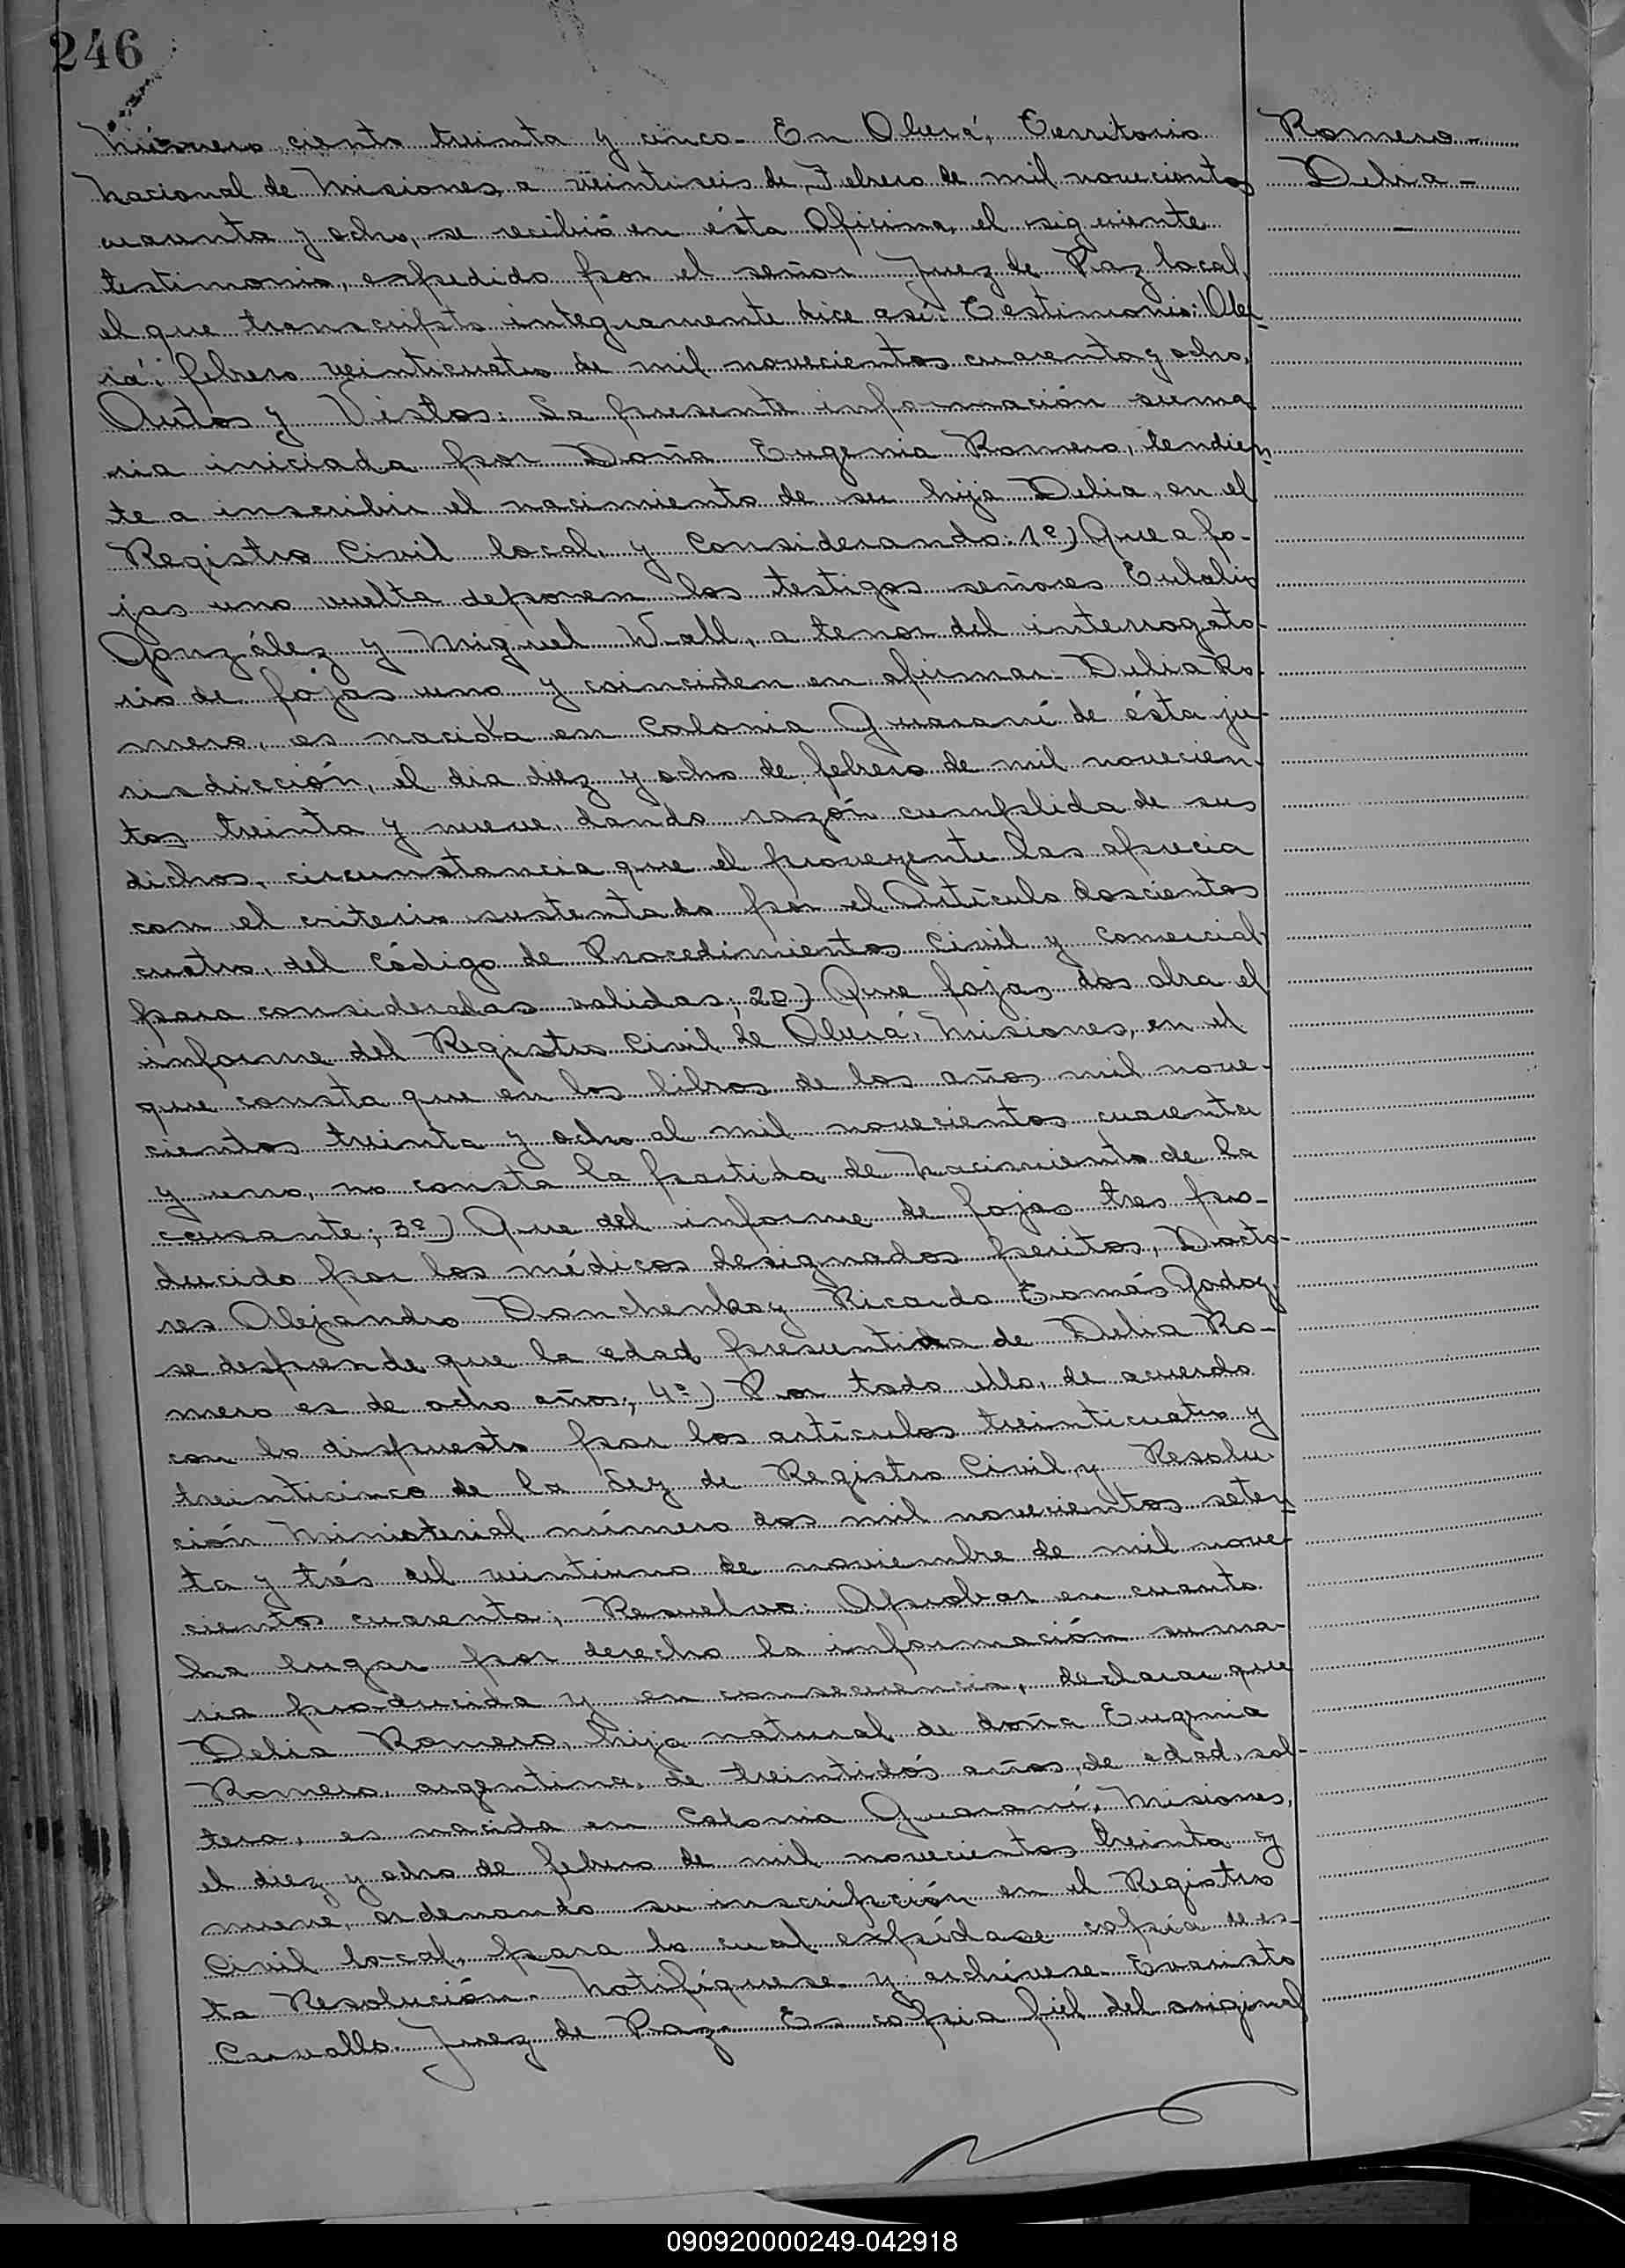 246
Número ciento treinta y cinco- En Oberá, Territorio
Romero-
Nacional de Misiones, a veintiseis de Febrero de mil novecientos
Delia-
cuarenta y ocho, se recibió en ésta Oficina, el siguiente
testimonio, expedido por el señor Juez de Paz local,
el que transcripto integramente dice asi: Testimonio: Obe-
rá: febrero veinticuatro de mil novecientos cuarenta y ocho,
Autos y Vistos: La presente información suma
ria iniciada por Doña Eugenia Romero, tendien-
te a inscribir el nacimiento de su hija Delia, en el
Registro Civil local, y Considerando: 1º) Que a fo-
jas uno vuelta deponen los testigos señores Eulalio
González y Miguel Wall, a tenor del interrogato-
rio de fojas uno y coinciden en afirmar: Delia Ro-
mero, es nacida en Colonia Guaraní de ésta ju-
risdicción, el dia diez y ocho de febrero de mil novecien-
tos treinta y nueve, dando razón cumplida de sus
dichos, circunstancia que el proveyente las aprecia
con el criterio sustentado por el Artículo doscientos
cuatro, del Código de Procedimientos Civil y Comercial,
para considerarlas validas; 2º) Que fojas dos obra el
informe del Registro Civil de Oberá, Misiones, en el
que consta que en los libros de los años mil nove-
cientos treinta y ocho al mil novecientos cuarenta
y uno, no consta la partida de nacimiento de la
causante; 3º) Que del informe de fojas tres pro-
ducido por los médicos designados peritos, Docto-
res Alejandro Danchenko y Ricardo Tomás Godoy,
se desprende que la edad presuntiva de Delia Ro-
mero es de ocho años; 4º) Por todo ello, de acuerdo
con lo dispuesto por los artículos treinticuatro y
treinticinco de la Ley de Registro Civil y Resolu-
ción Ministerial número dos mil novecientos seten-
ta y trés del veintiuno de noviembre de mil nove-
cientos cuarenta; Resuelvo: Aprobar en cuanto
ha lugar por derecho la información suma-
ria producida y en consecuencia, declarar que
Delia Romero, hija natural de doña Eugenia
Romero, argentina, de treintidós años de edad, sol-
tera, es nacida en Colonia Guaraní, Misiones,
el diez y ocho de febrero de mil novecientos treinta y
nueve, ordenando su inscripción en el Registro
Civil local, para lo cual expídase copia de es-
ta Resolución. Notifíquese y archívese. Evaristo
Carvallo. Juez de Paz. Es copia fiel del original
090920000249-042918